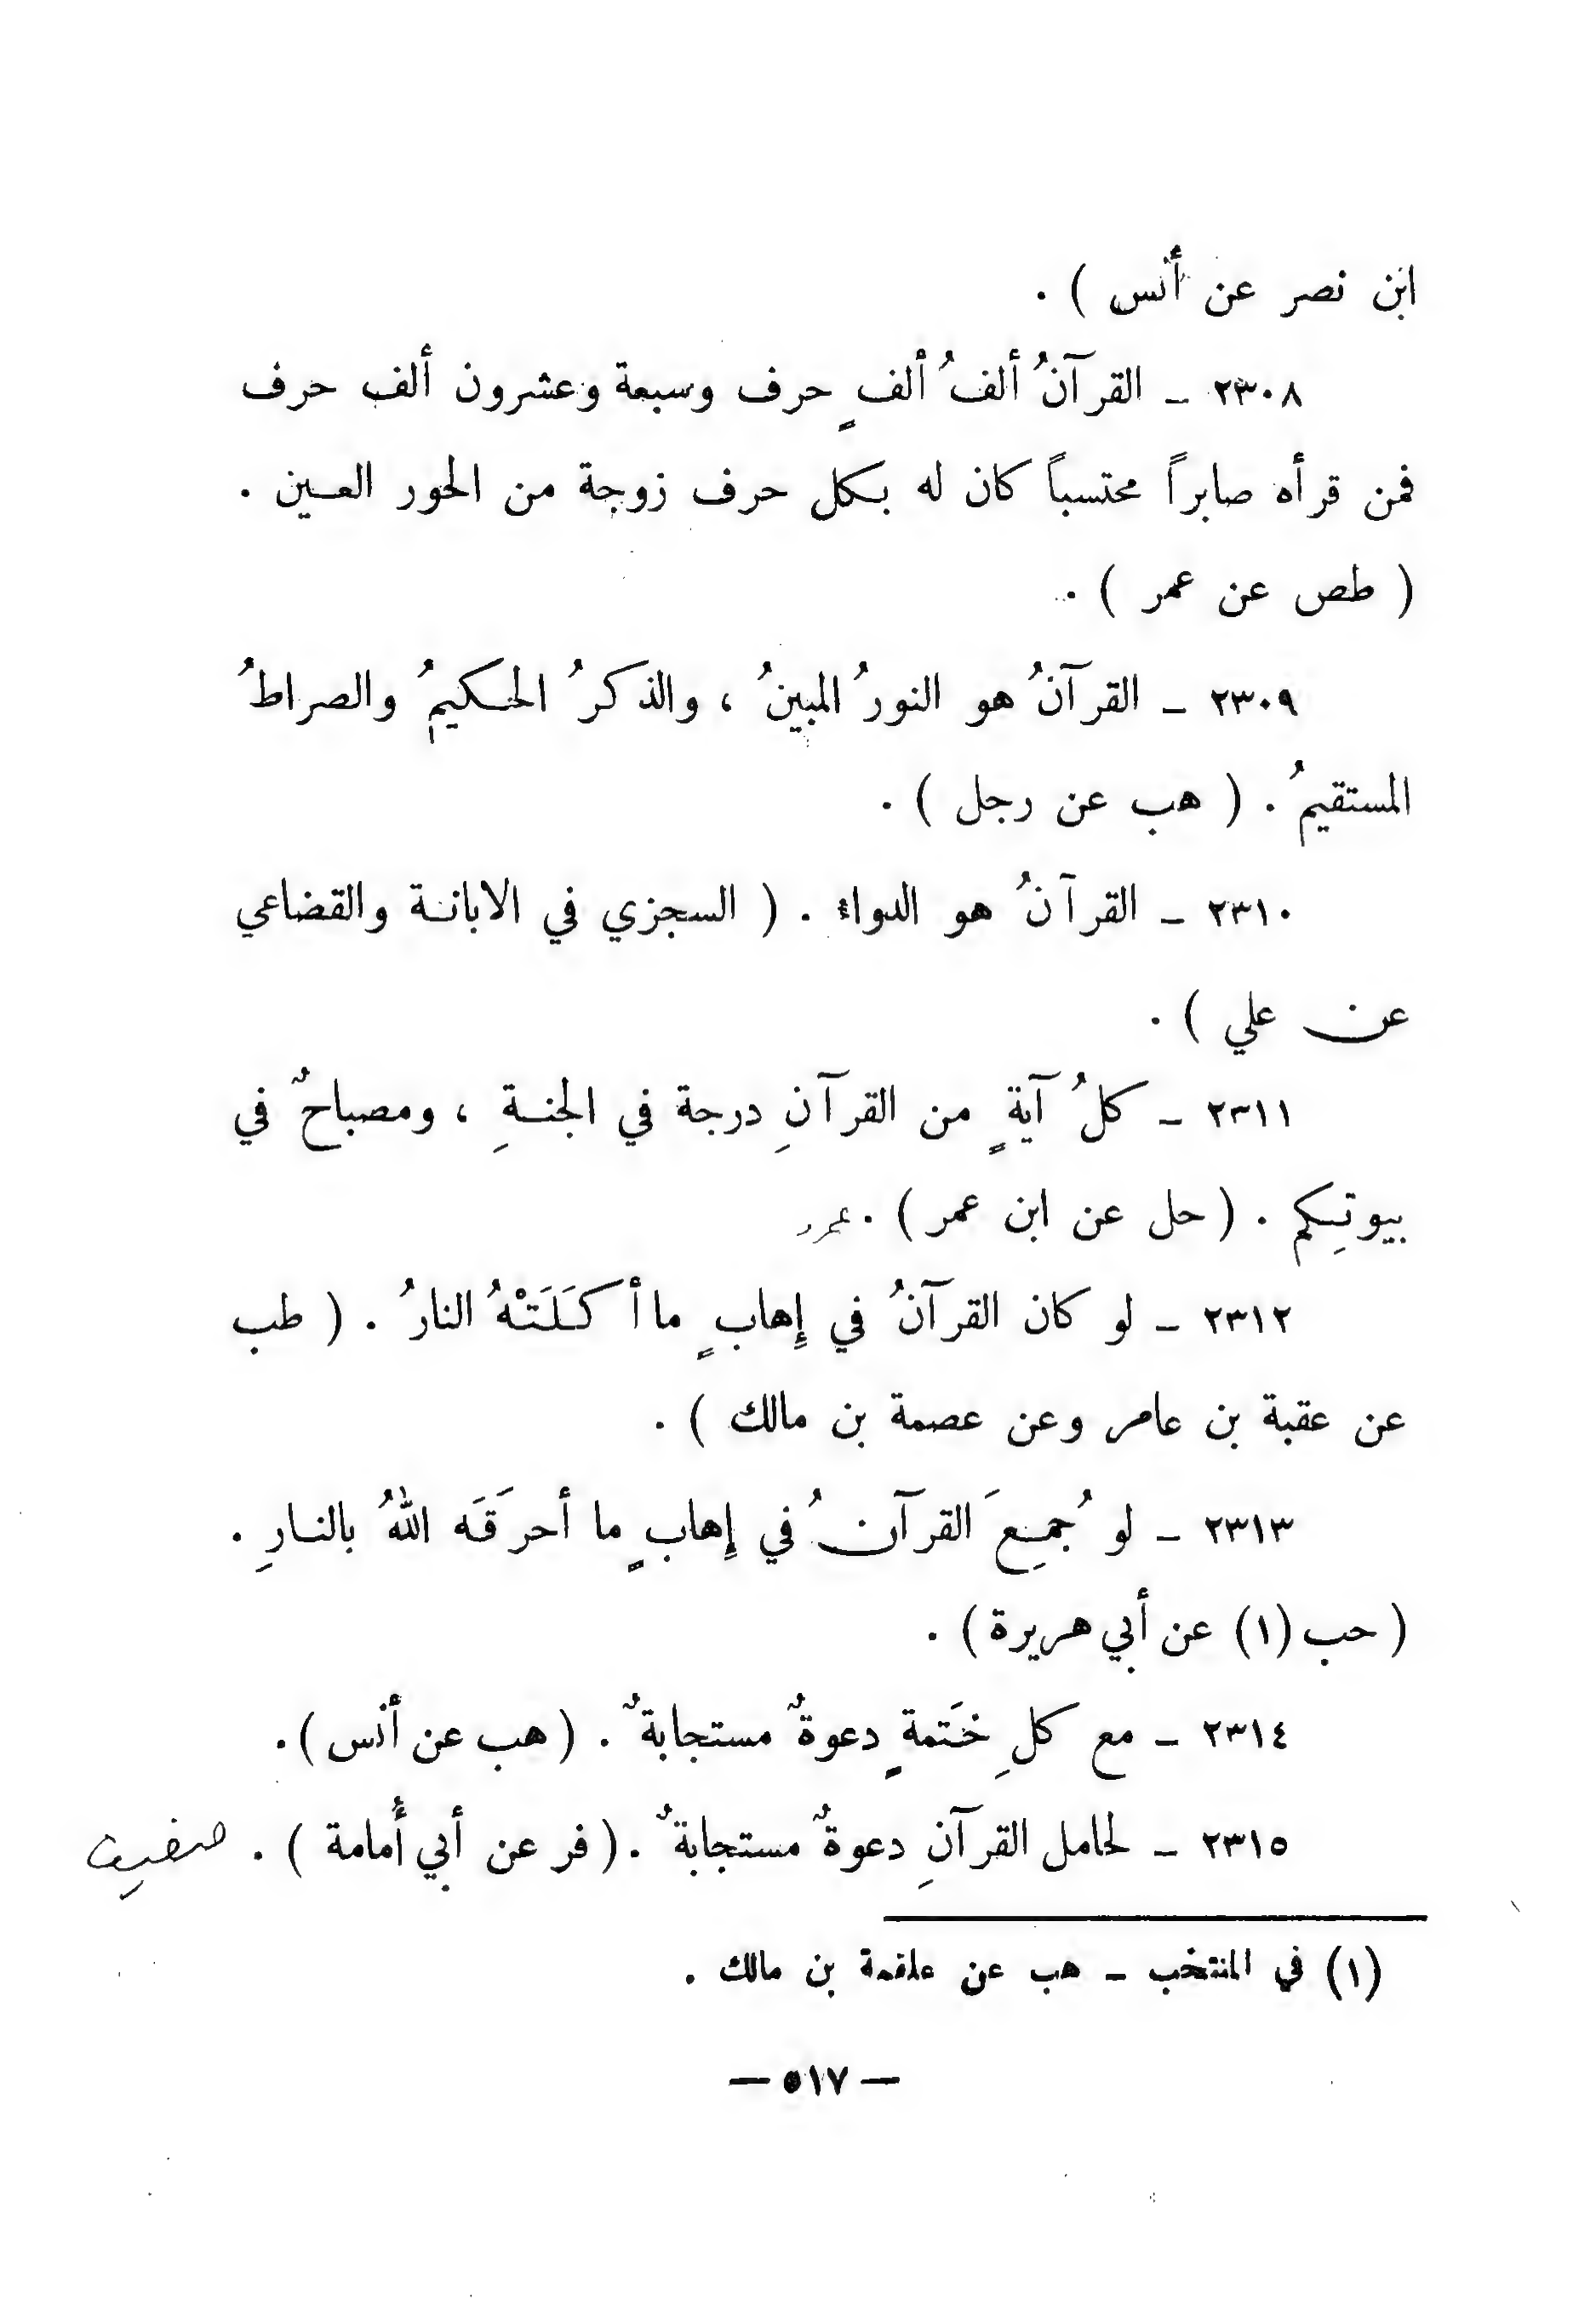 ابن نصر عن أنس ) .
٢٣٠٨ ـ القرآنُ ألفُ ألفٍ حرف وسبعة وعشرون ألف حرف
فمن قرأه صابراً محتسباً كان له بكل حرف زوجة من الحور العـين .
( طص عن عمر ) .
٢٣٠٩ ـ القرآنُ هو النورُ المبينُ ، والذكرُ الحكيمُ والصراطُ
المستقيمُ . ( هب عن رجل ) .
٢٣١٠ ـ القرآنُ هو الدواء . ( السجزي في الابانـة والقضاعي
عن علي ) .
٢٣١١ ـ كلُ آيةٍ من القرآنِ درجة في الجنـةِ ، ومصباحٌ في
بيوتِكم . ( حل عن ابن عمر ) . عمرو
٢٣١٢ ـ لو كان القرآنُ في إِهابٍ ما أكَلَتْهُ النارُ . ( طب
عن عقبة بن عامر وعن عصمة بن مالك ) .
٢٣١٣ ـ لو جُمِعَ القرآنُ في إِهابٍ ما أحرَقَه اللهُ بالنـارِ .
( حب (١) عن أبي هريرة ) .
٢٣١٤ ـ مع كلِ خَتمةٍ دعوةٌ مستجابةٌ . ( هب عن أنس ) .
٢٣١٥ ـ لحامل القرآنِ دعوةٌ مستجابةٌ . ( فر عن أبي أُمامة ) . ضعيف
(١) في المنتخب ـ هب عن علقمة بن مالك .
— ٥١٧ —